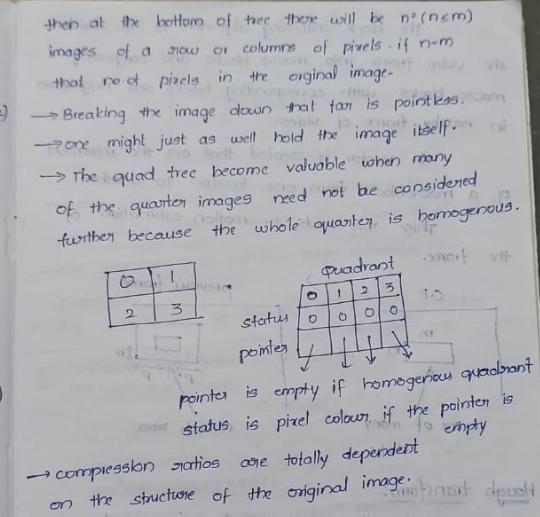 then at the bottom of tree there will be n² (n≤m)
images of a row or columns of pixels. if n=m
that no of pixels in the orginal image.
→ Breaking the image down that far is pointless.
→ one might just as well hold the image itself.
→ The quad tree become valuable when many
of the quarter images need not be considered
further because the whole quarter is homogenous.
0 1
2 3
Quadrant
0 1 2 3
status 0 0 0 0
pointer
pointer is empty if homogenous quadrant
status is pixel colour if the pointer is
empty
→ compression ratios are totally dependent
on the structure of the original image.